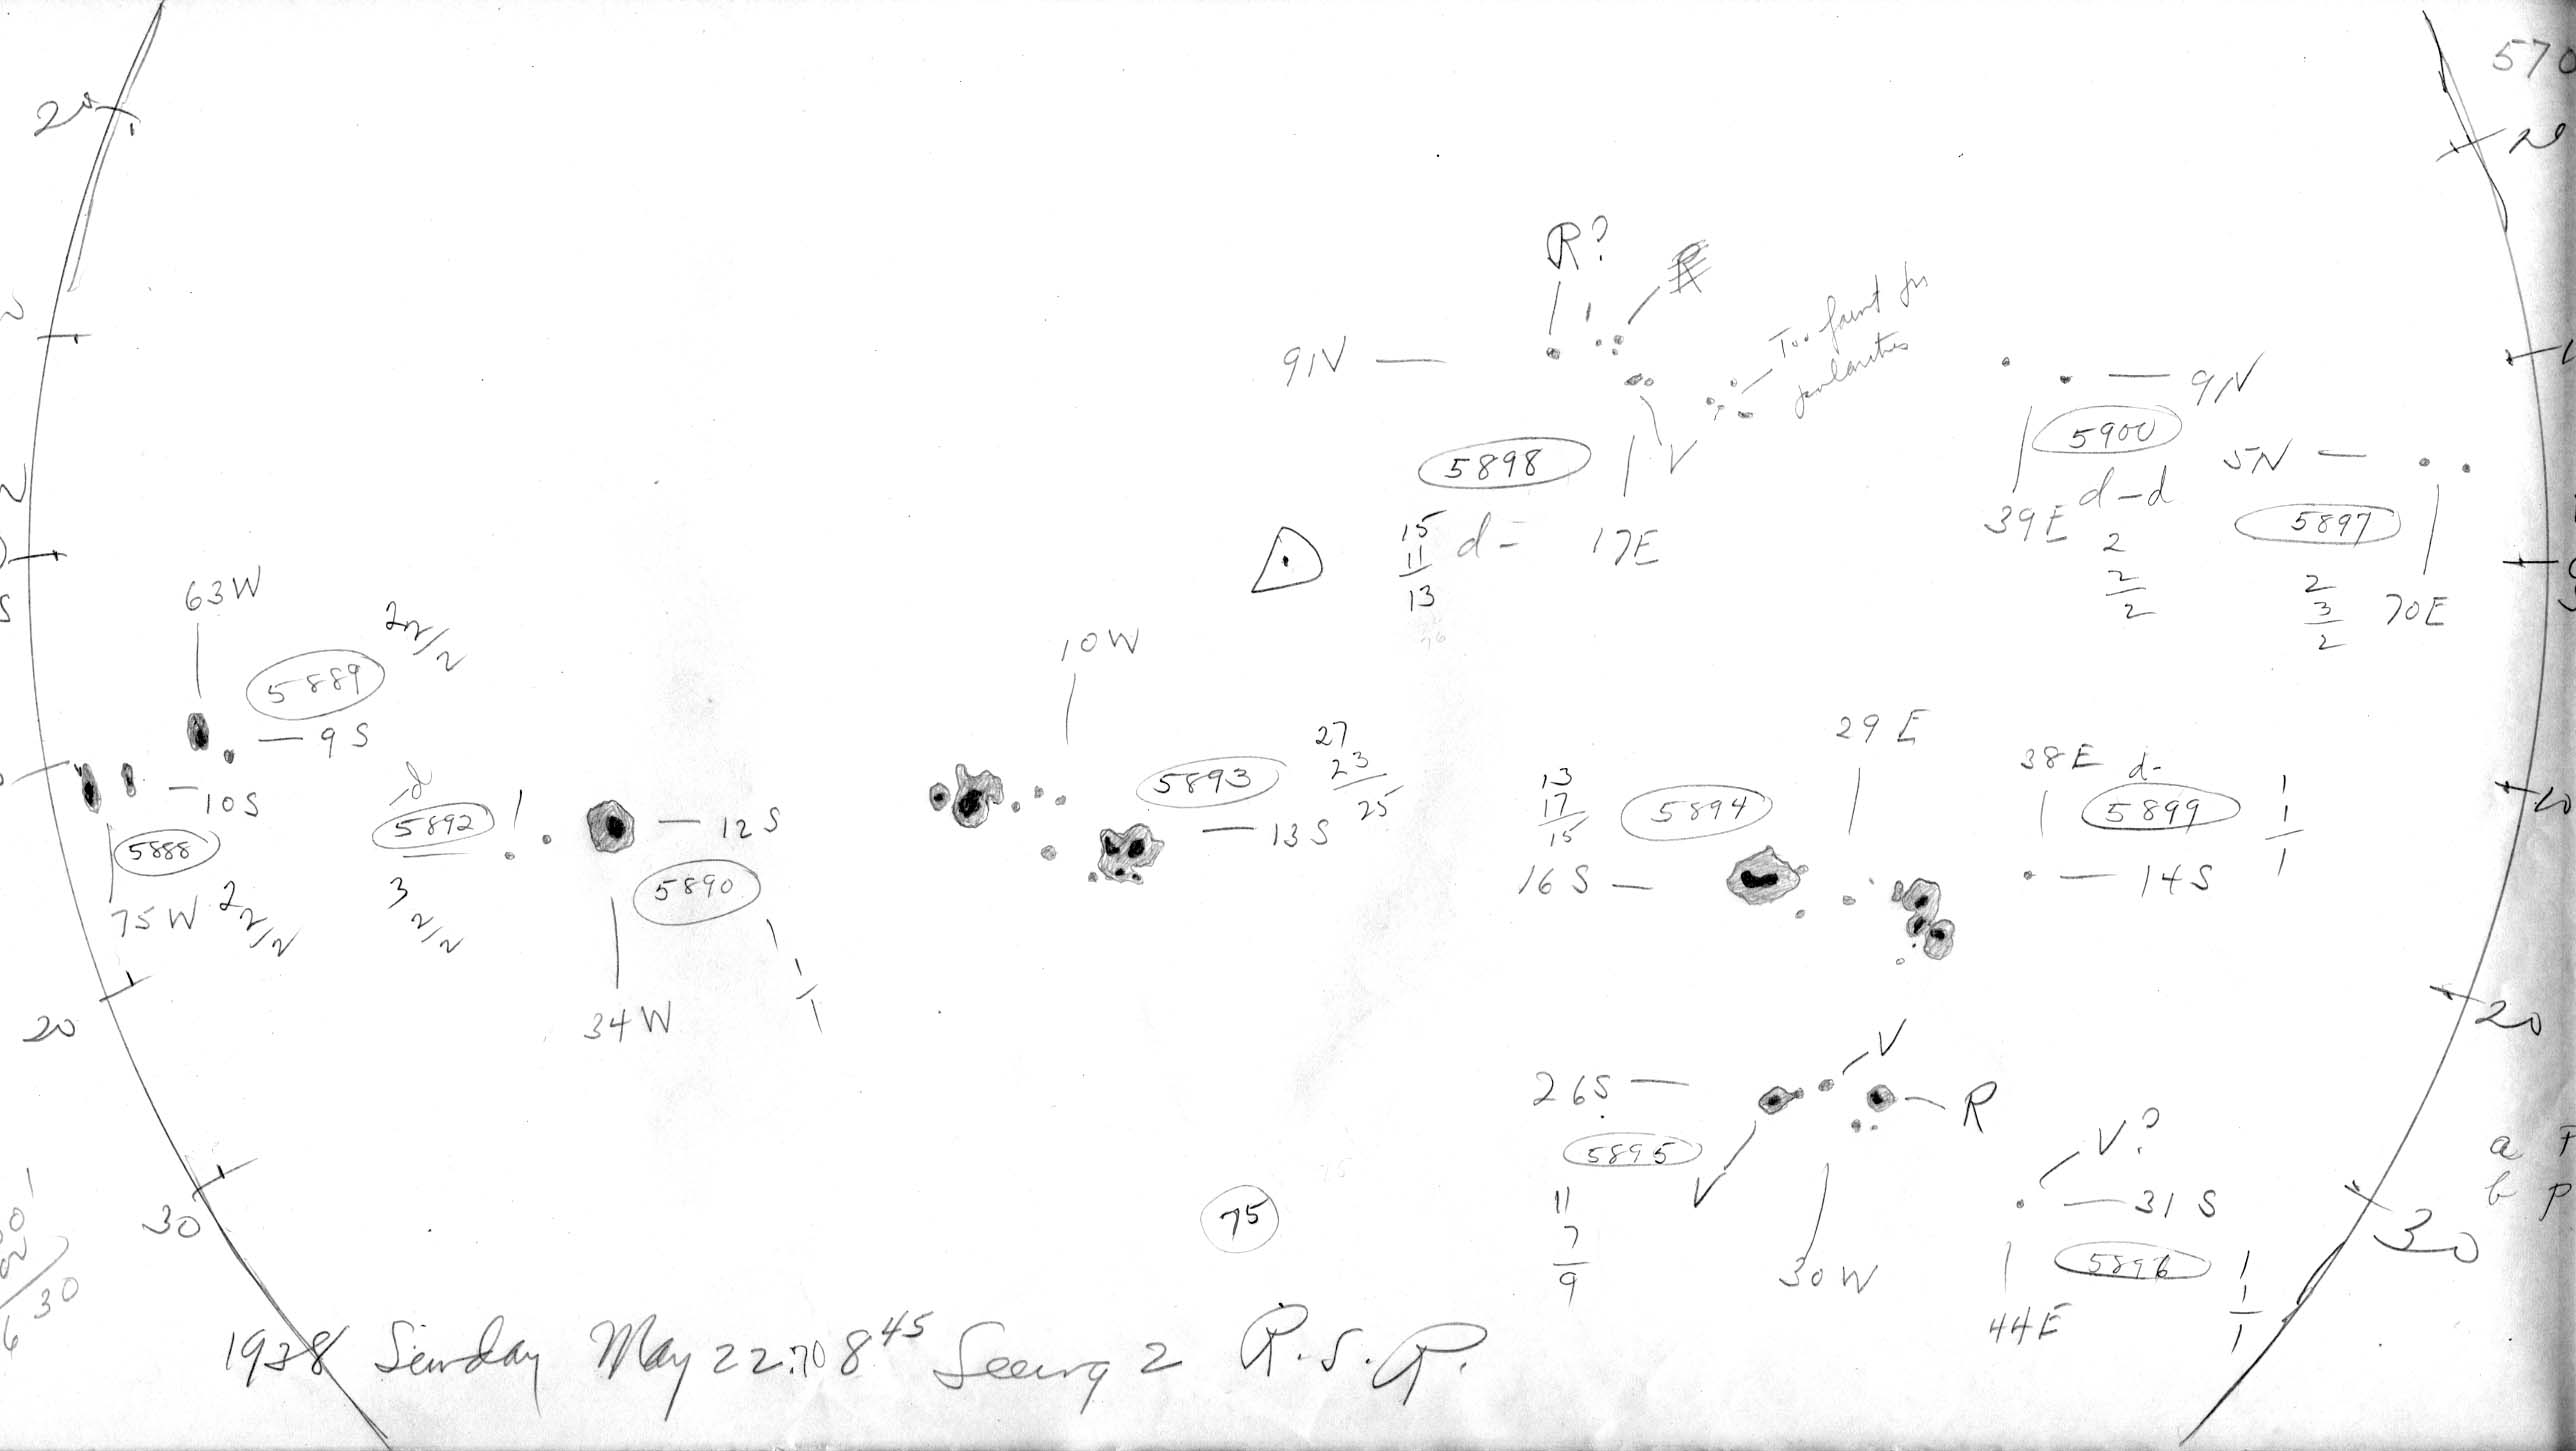 570
20
20
R?
R
Too faint for
polarities
9N
9N
5900
V
5898
5N
d-d
39E
2
2
2
5897
2
3
2
70E
15
11
13
d-
17E
63W
2 2/2
5889
9S
10W
10S
5888
75W
2 2/2
-d
5892
3
2/2
12S
5890
34W
1
1
1
5893
27
23
25
13S
29E
13
17
15
5894
16S
38E
d-
5899
1
1
1
14S
10
20
20
V
26S
R
5895
V
11
7
9
30W
V?
31S
5896
44E
1
1
1
a
b P
30
30
30
75
1938 Sunday May 22.70 8 45 Seeing 2 R.S.R.